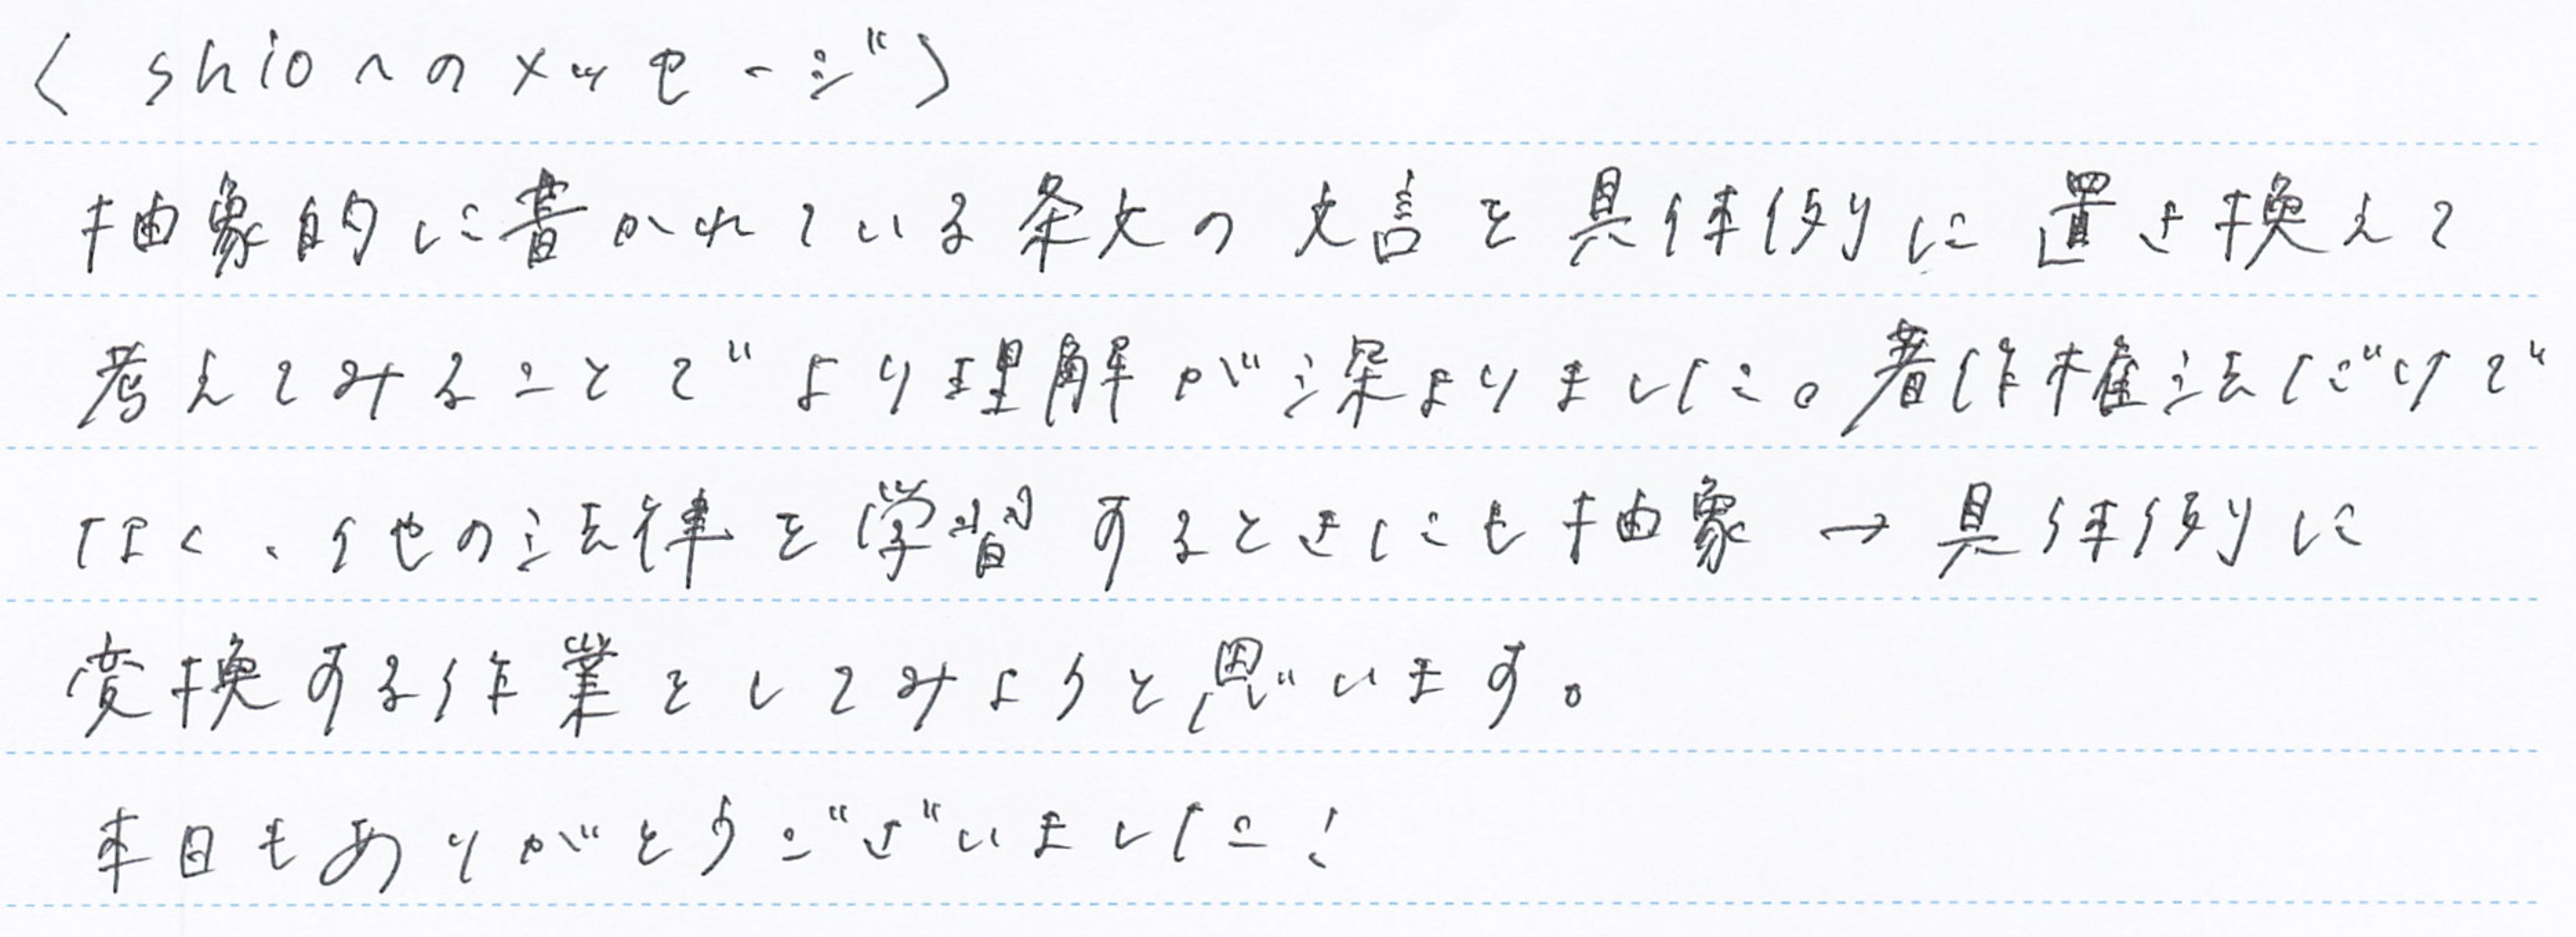 〈shioへのメッセージ〉
抽象的に書かれている条文の文言を具体例に置き換えて
考えてみることでより理解が深まりました。著作権法だけで
なく、他の法律を学習するときにも抽象→具体例に
変換する作業をしてみようと思います。
本日もありがとうございました!